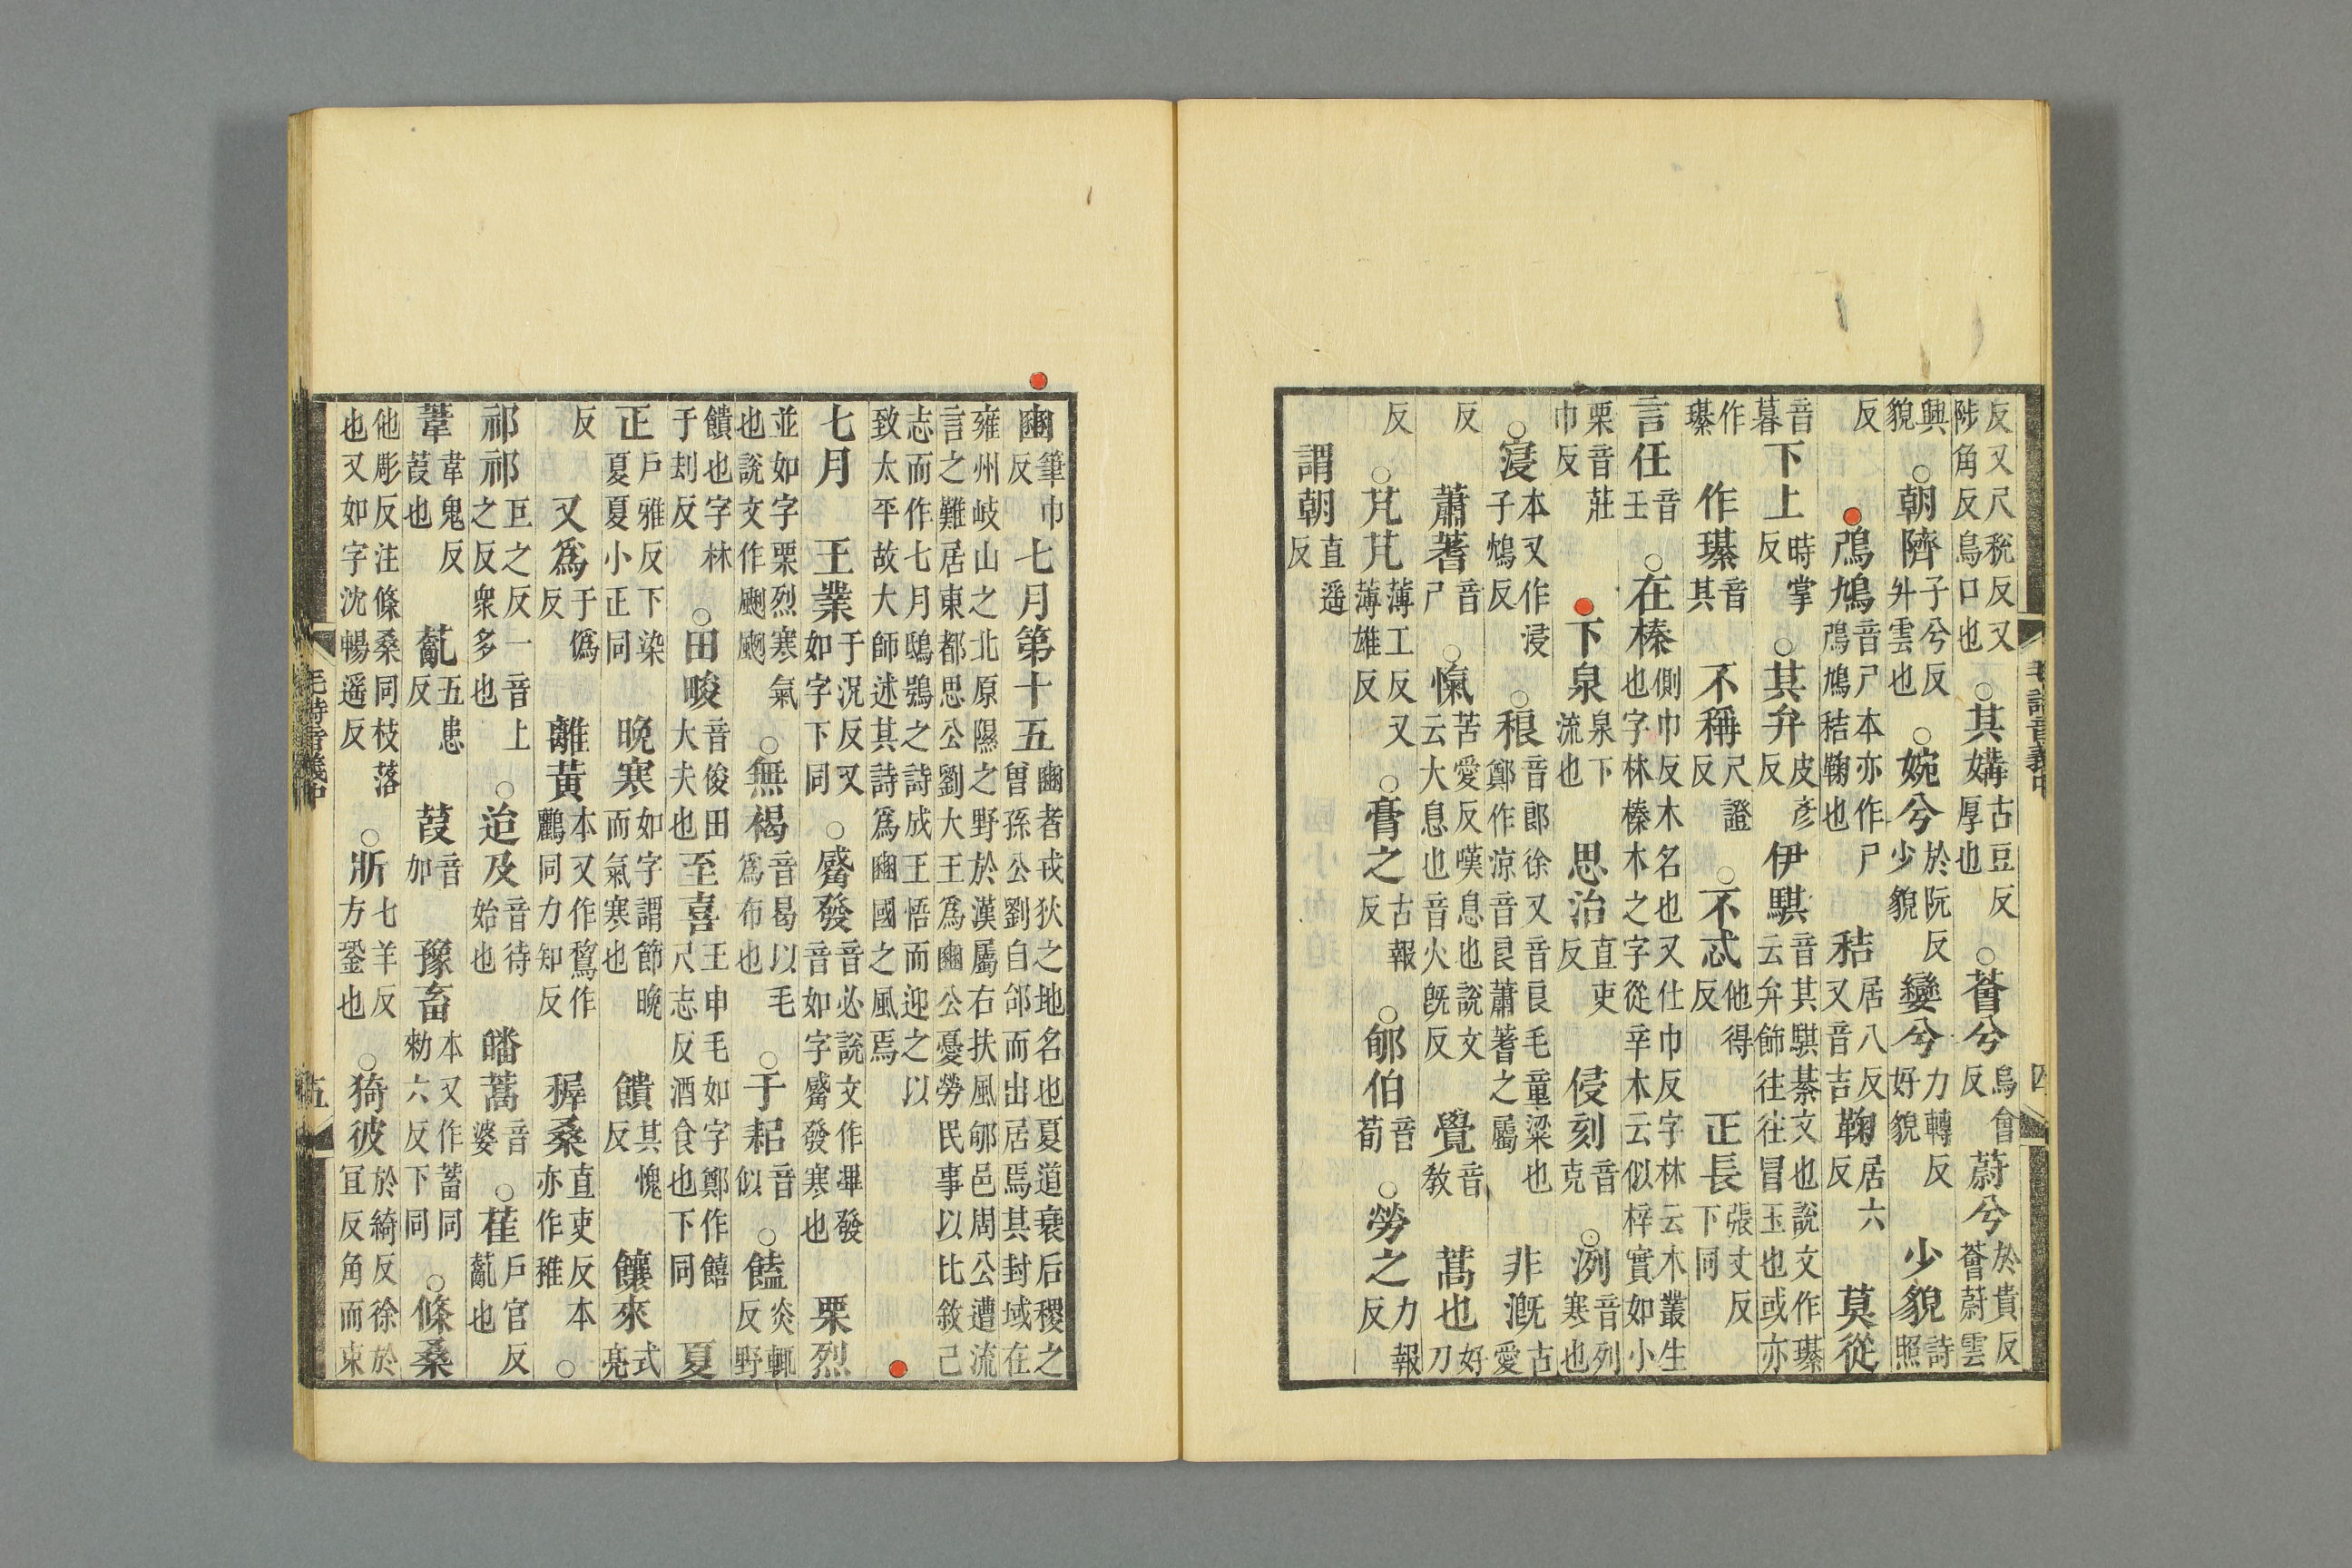 反又尺稅反又陟角反鳥口也○其媾古豆反厚也○薈兮烏會反蔚兮於貴反薈蔚雲
興貌○朝隮子兮反升雲也○婉兮於阮反少貌孌兮力轉反好貌少貌詩照
反鳲鳩音尸本亦作尸鳲鳩秸鞠也秸居八反又音吉鞠居六反莫從
音暮下上時掌反○其弁皮彥反伊騏音其騏綦文也說文作瑧云弁飾往往冒玉也或亦
作瑧作瑧音其不稱尺證反○不忒他得反正長張丈反下同
言任音壬○在榛側巾反木名也又仕巾反字林云木叢生也字林榛木之字從辛木云似梓實如小
栗音莊巾反下泉泉下流也思治直吏反侵刻音克○洌音列寒也
○寖本又作浸子鴆反○稂音郎徐又音良毛童粱也鄭作涼音良蕭蓍之屬非溉古愛
反蕭蓍音尸○愾苦愛反嘆息也說文云大息也音火旣反覺音敎蒿也好刀
反○芃芃薄工反又薄雄反○膏之古報反○郇伯音荀○勞之力報反
謂朝直遥反
毛詩音義中 四
豳筆巾反七月第十五豳者戎狄之地名也夏道衰后稷之曾孫公劉自邰而出居焉其封域在
雍州岐山之北原隰之野於漢屬右扶風郇邑周公遭流言之難居東都思公劉大王爲豳公憂勞民事以比敘己
志而作七月鴟鴞之詩成王悟而迎之以致太平故大師述其詩爲豳國之風焉
七月王業于況反又如字下同○觱發音必說文作㓖發音如字觱發寒也栗烈
並如字栗烈寒氣也說文作颲颲○無褐音曷以毛爲布也○于耜音似○饁炎輒反野
饋也字林于刦反○田畯音俊田大夫也至喜王申毛如字鄭作饎尺志反酒食也下同夏
正戶雅反下染夏夏小正同晚寒如字謂節晚而氣寒也饋其愧反饟來式亮
反又爲于僞反離黃本又作鵹作鸝同力知反穉桑直吏反本亦作稚○
祁祁巨之反一音上之反衆多也○迨及音待始也皤蒿音婆○萑戶官反薍也
葦韋鬼反葭也薍五患反葭音加豫畜本又作蓄同勑六反下同○條桑
他彫反注條桑同枝落也又如字沈暢遥反○斨七羊反方銎也○猗彼於綺反徐於宜反角而束
毛詩音義中 五